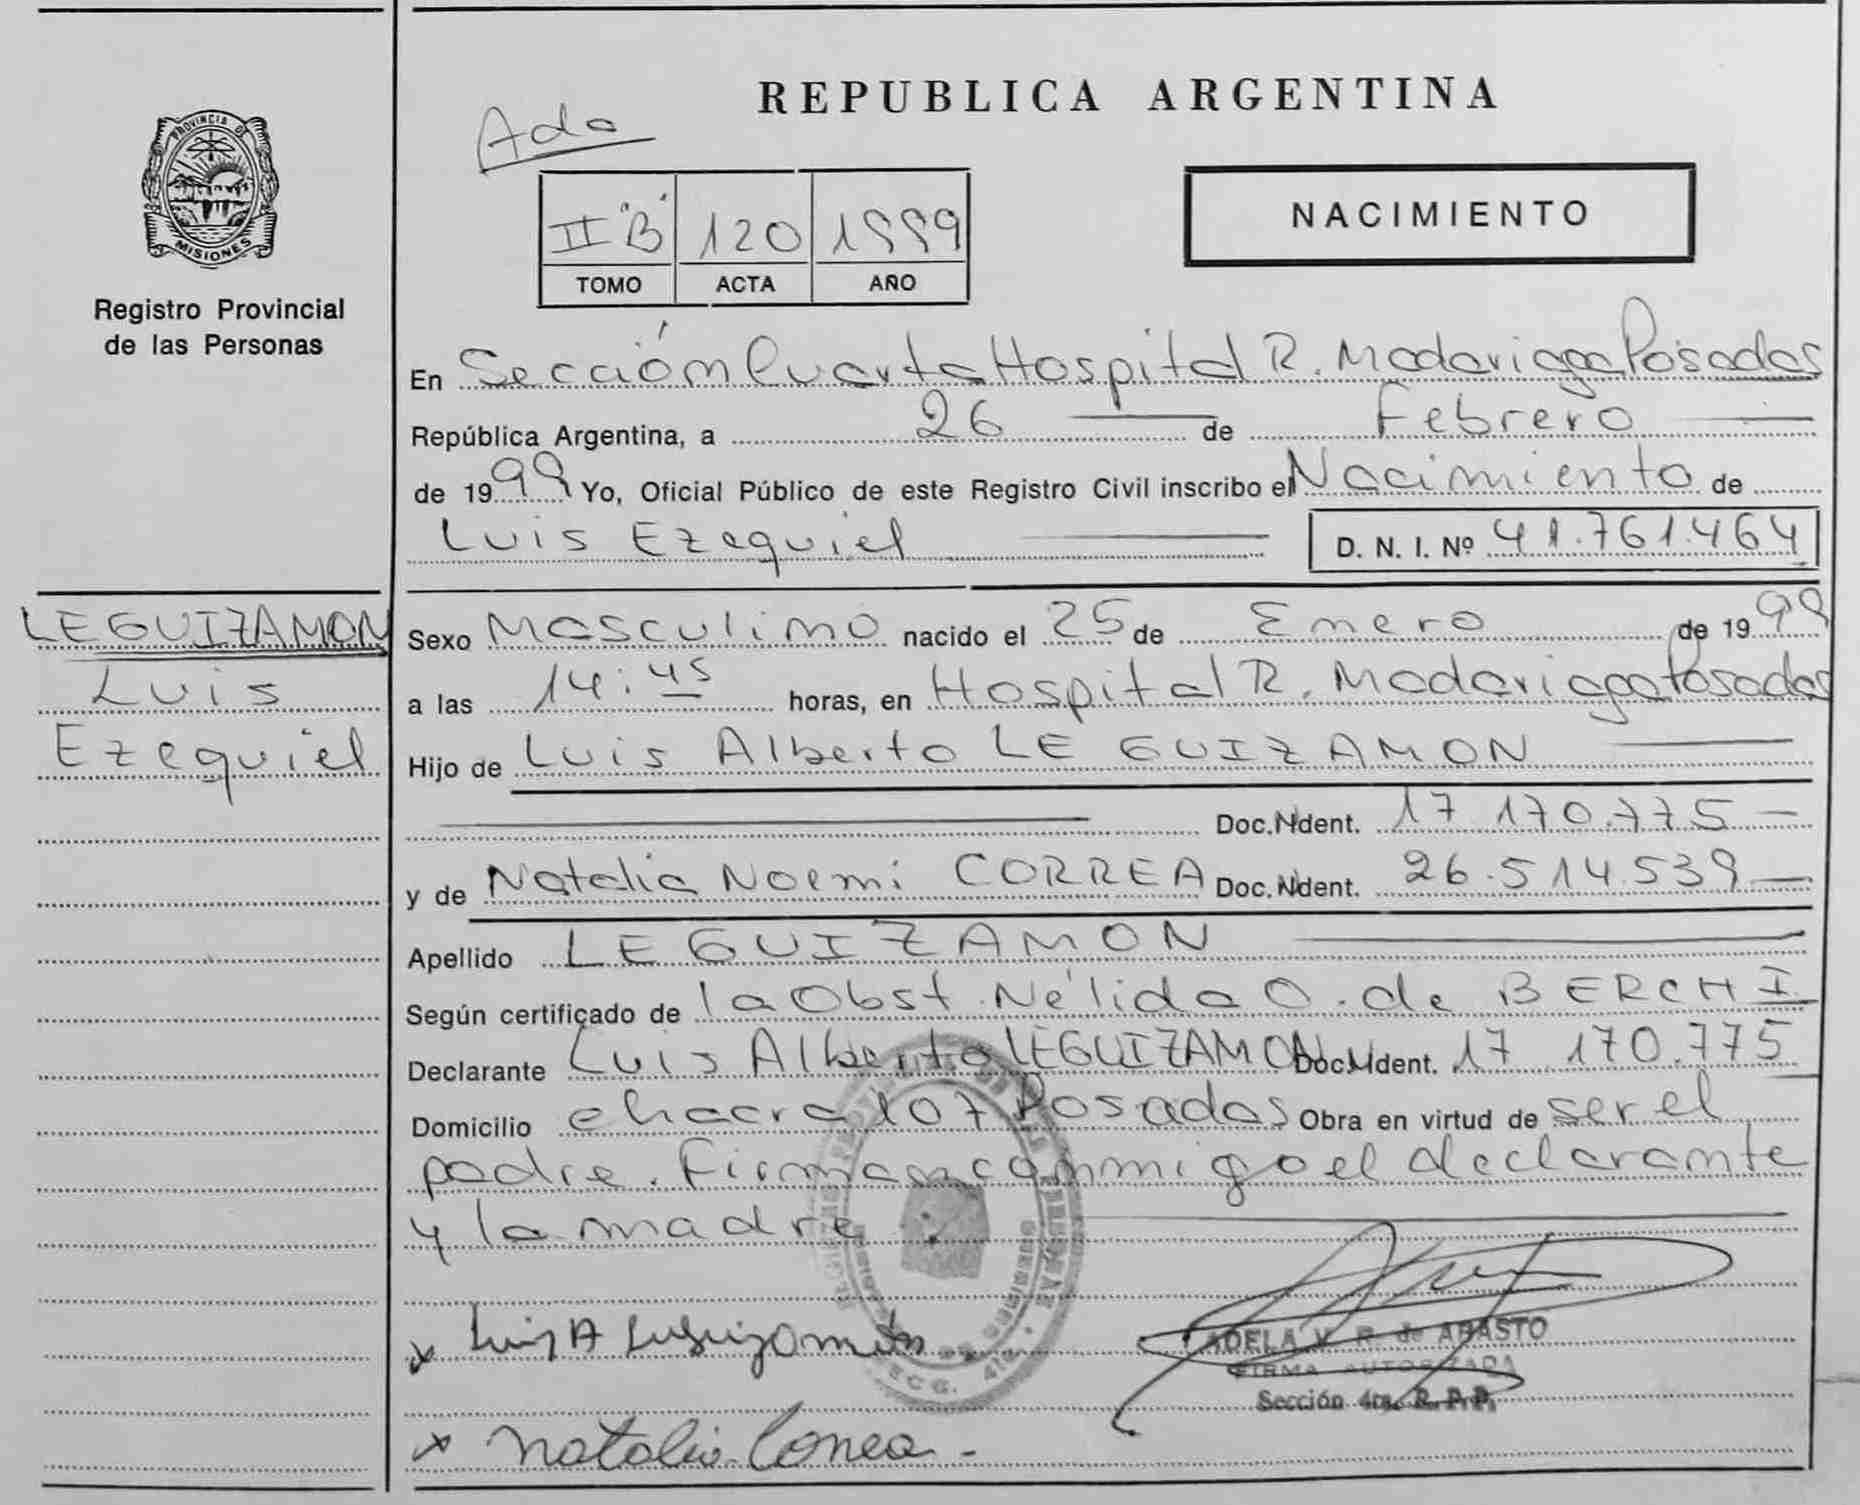 REPUBLICA ARGENTINA
Ado
PROVINCIA DE
MISIONES
Registro Provincial
de las Personas
II "B" 120 1999
TOMO ACTA AÑO
NACIMIENTO
En Sección Cuarta Hospital R. Madariaga Posadas
República Argentina, a 26 de Febrero
de 1999 Yo, Oficial Público de este Registro Civil inscribo el Nacimiento de
Luis Ezequiel D. N. I. Nº 41.761.464
LEGUIZAMON
Luis
Ezequiel
Sexo Masculino nacido el 25 de Enero de 1999
a las 14:45 horas, en Hospital R. Madariaga Posadas
Hijo de Luis Alberto LEGUIZAMON
Doc. Ident. 17 170.775
y de Natalia Noemi CORREA Doc. Ident. 26.514.539
Apellido LEGUIZAMON
Según certificado de la Obst. Nélida O. de BERCHI
Declarante Luis Alberto LEGUIZAMON Doc. Ident. 17 170.775
Domicilio chacra 107 Posadas Obra en virtud de ser el
padre. Firman conmigo el declarante
y la madre
x Luis A Leguizamón
ADELA V. R. de ABASTO
FIRMA AUTORIZADA
Sección 4ta. R. P. P.
x Natalia Correa